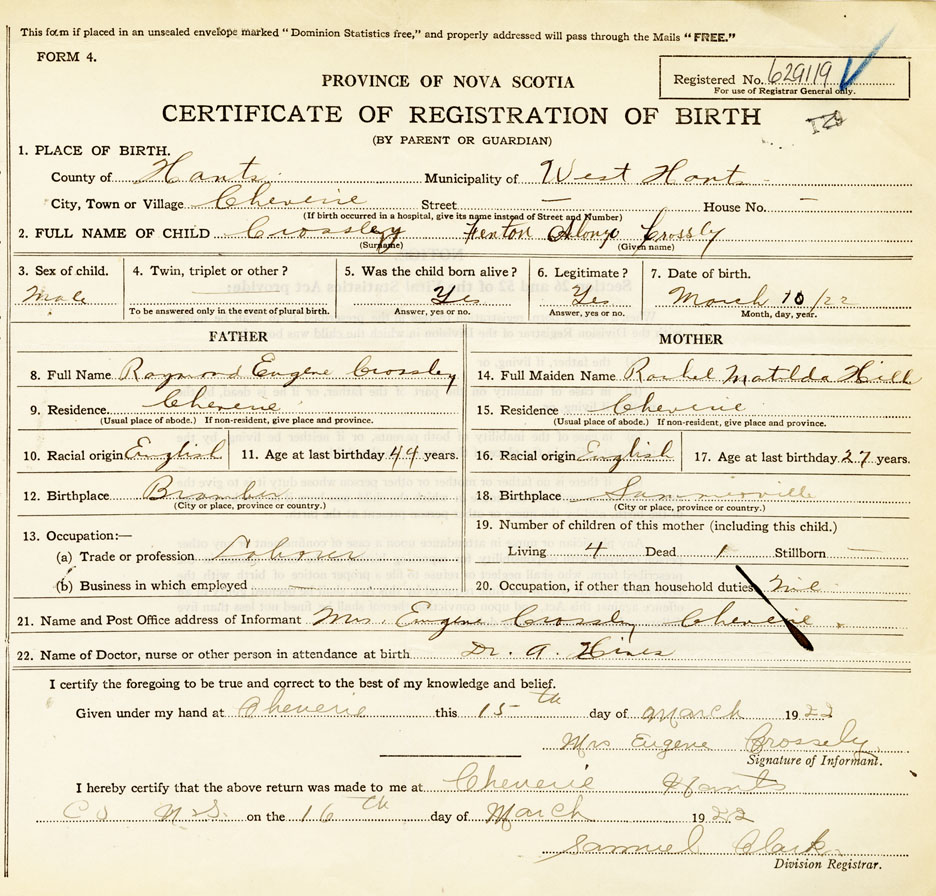 This form if placed in an unsealed envelope marked "Dominion Statistics free," and properly addressed will pass through the Mails "FREE."
FORM 4.
Registered No. 629119
For use of Registrar General only.
PROVINCE OF NOVA SCOTIA
CERTIFICATE OF REGISTRATION OF BIRTH
(BY PARENT OR GUARDIAN)
1. PLACE OF BIRTH.
County of Hants Municipality of West Hants
City, Town or Village Cheverie Street — House No. —
(If birth occurred in a hospital, give its name instead of Street and Number)
2. FULL NAME OF CHILD Crossley Fenton Alonzo Crossly
(Surname) (Given name)
3. Sex of child. 4. Twin, triplet or other? 5. Was the child born alive? 6. Legitimate? 7. Date of birth.
Male Yes Yes March 10/22
To be answered only in the event of plural birth. Answer, yes or no. Answer, yes or no. Month, day, year.
FATHER MOTHER
8. Full Name Raymond Eugene Crossley 14. Full Maiden Name Rachel Matilda Hill
9. Residence. Cheverie 15. Residence Cheverie
(Usual place of abode.) If non-resident, give place and province. (Usual place of abode.) If non-resident, give place and province.
10. Racial origin English 11. Age at last birthday 44 years. 16. Racial origin English 17. Age at last birthday 27 years.
12. Birthplace Bramber 18. Birthplace Summerville
(City or place, province or country.) (City or place, province or country.)
13. Occupation:— 19. Number of children of this mother (including this child.)
(a) Trade or profession Labourer Living 4 Dead 1 Stillborn —
(b) Business in which employed — 20. Occupation, if other than household duties Nil
21. Name and Post Office address of Informant Mrs. Eugene Crossley Cheverie
22. Name of Doctor, nurse or other person in attendance at birth Dr. A. Hines
I certify the foregoing to be true and correct to the best of my knowledge and belief.
Given under my hand at Cheverie this 15th day of March 1922
Mrs Eugene Crossely
Signature of Informant.
I hereby certify that the above return was made to me at Cheverie Hants
Co N.S. on the 16th day of March 1922
Samuel Clark
Division Registrar.